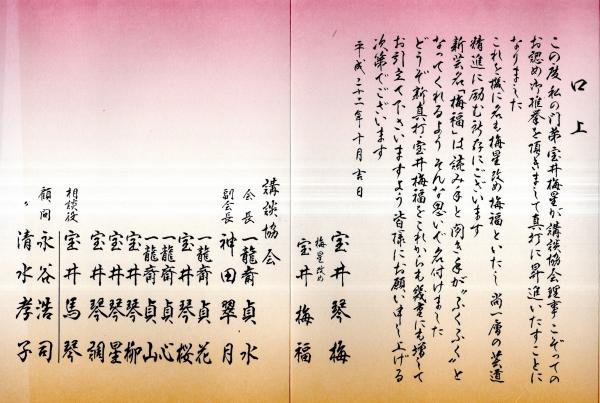 口上
この度私の門弟宝井梅星が講談協会理事こぞっての
お認め御推挙を頂きまして真打に昇進いたすことに
なりました
これを機に名も梅星改め梅福といたし尚一層の芸道
精進に励む所存にございます
新芸名「梅福」は読み手と聞き手が〝ふくふく〟と
なってくれるよう そんな思いで名付けました
どうぞ新真打・宝井梅福をこれからも幾重にも増して
お引立て下さいますよう皆様にお願い申し上げる
次第でございます
平成二十二年十月吉日
宝井琴梅
梅星改め
宝井梅福
講談協会
会長 一龍斎貞水
副会長 神田翠月
一龍斎貞花
宝井琴桜
一龍斎貞心
一龍斎貞山
宝井琴柳
宝井琴星
宝井琴調
相談役 宝井馬琴
顧問 永谷浩司
〃 清水孝子